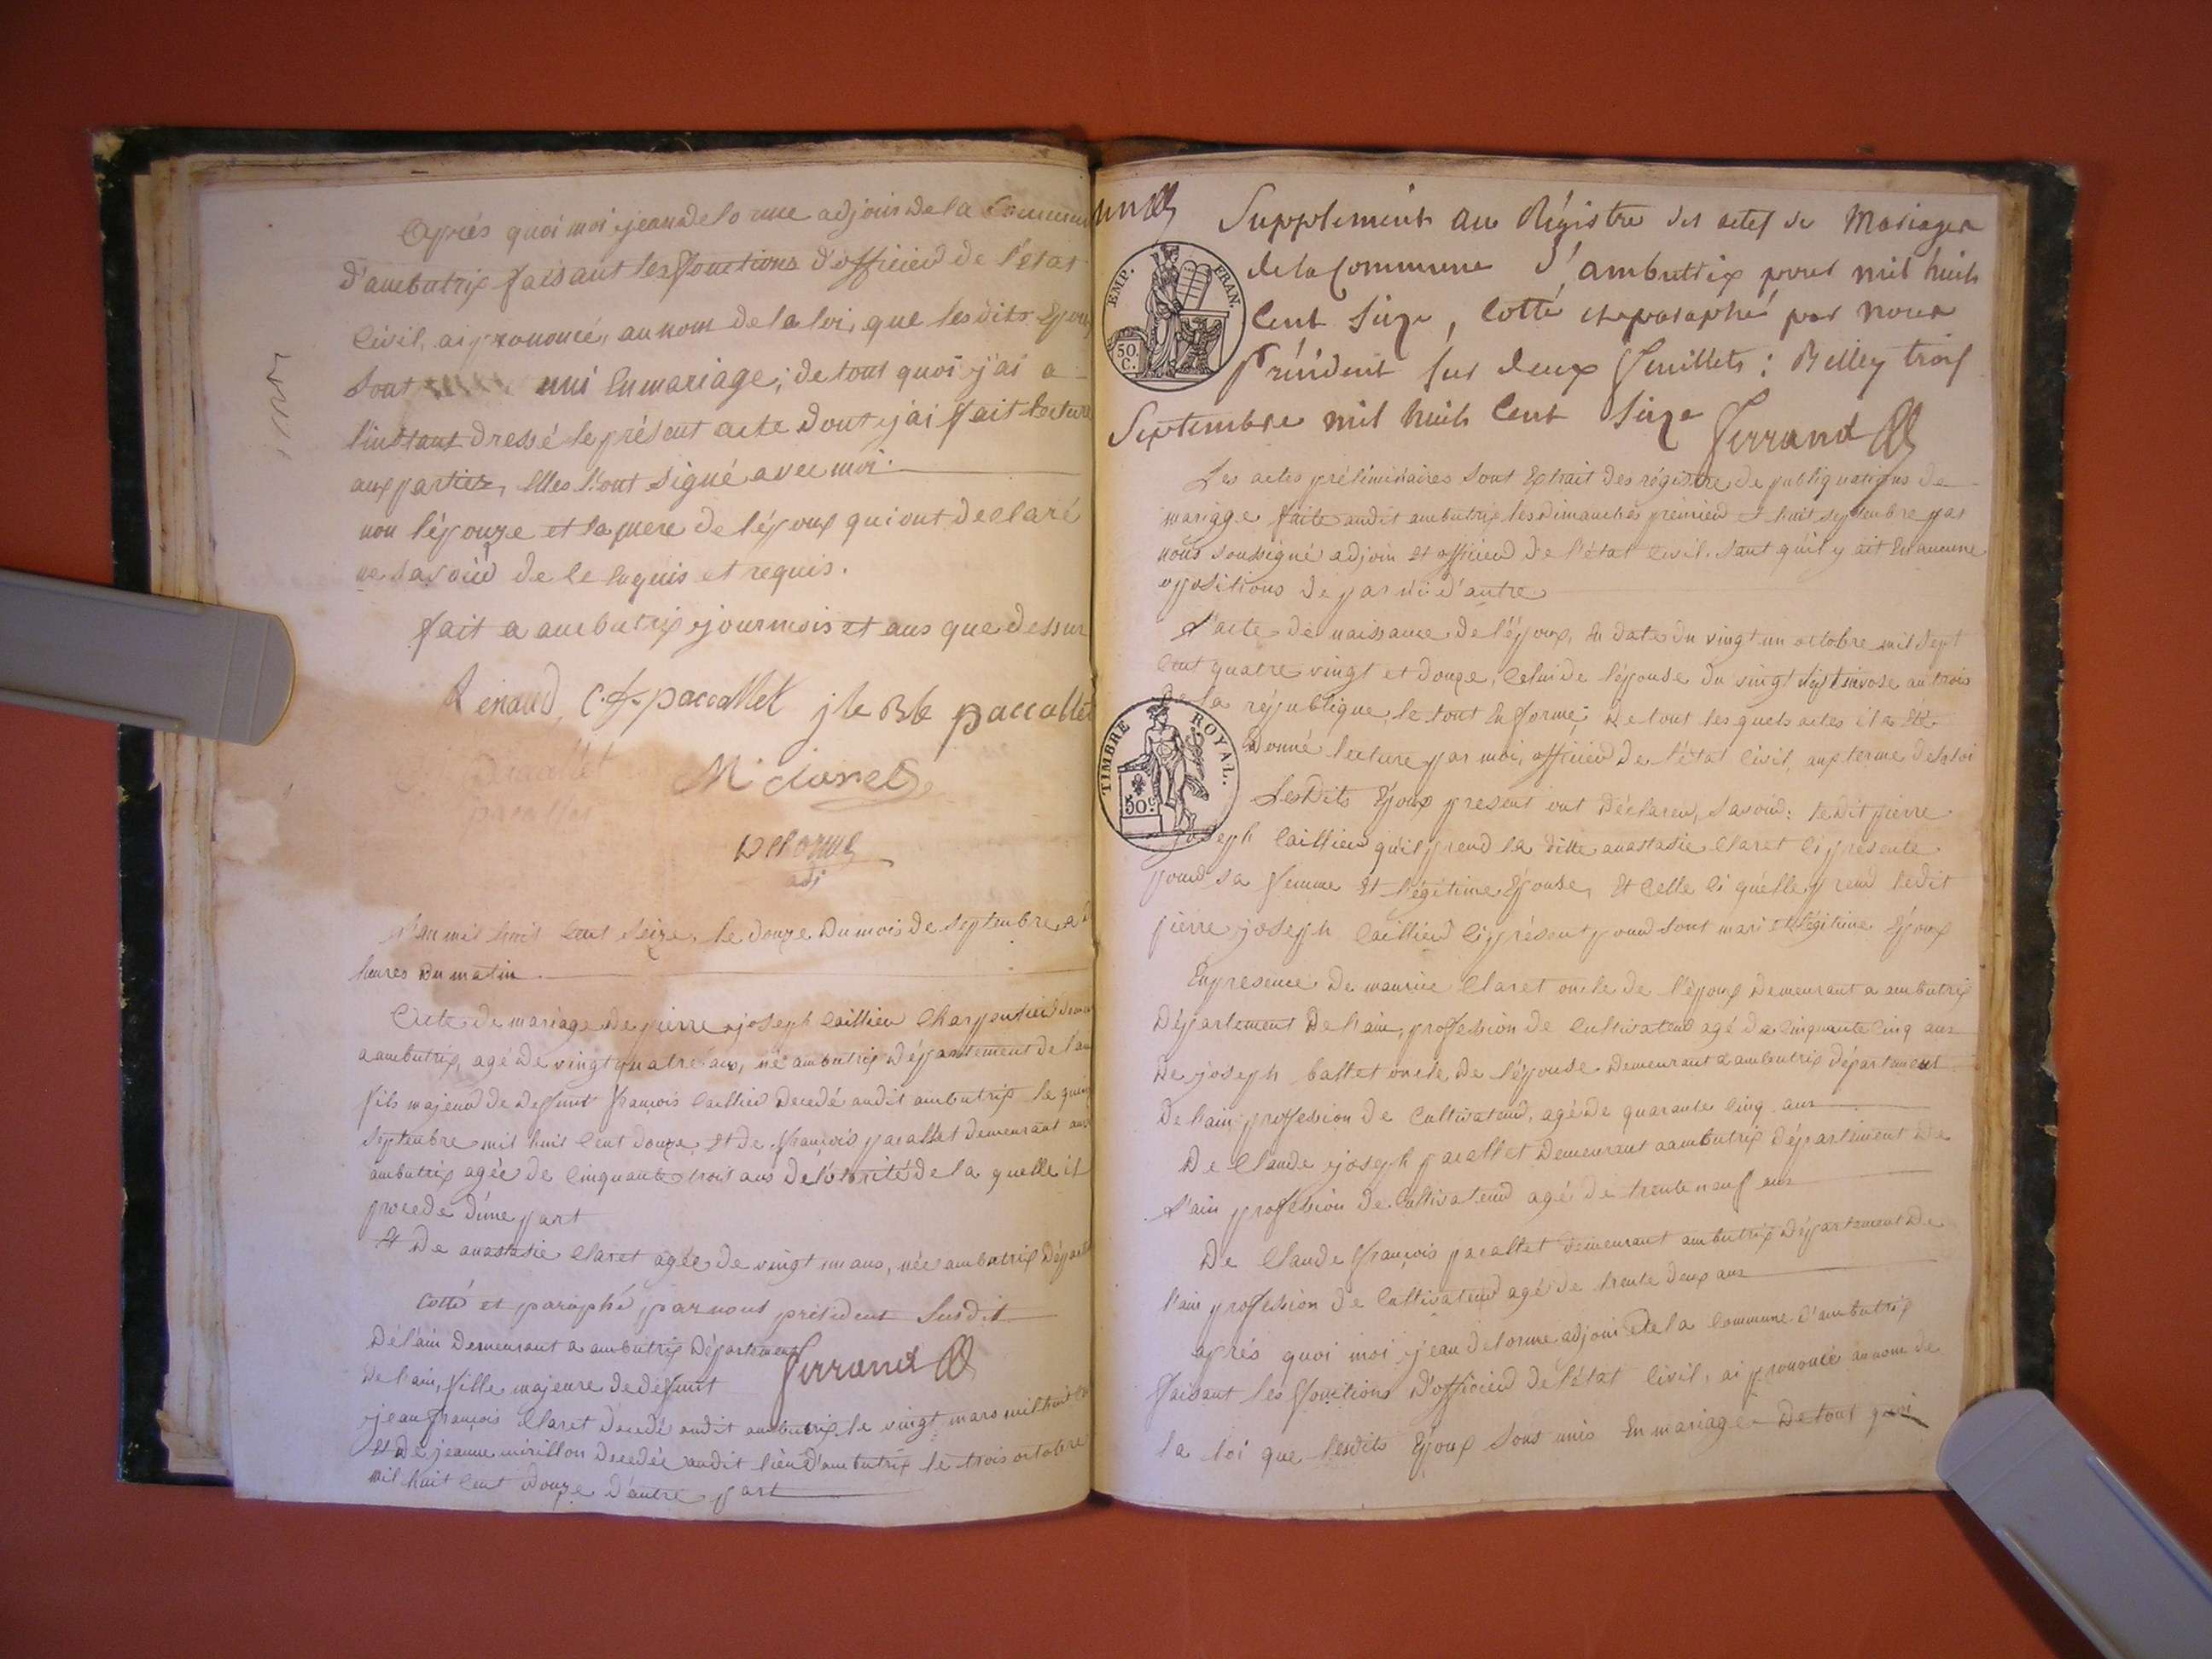 Après quoi moi jean delorme adjoin de la Commune
d'ambutrix faisant les fonctions d'officier de l'état
Civil, ai prononcé, au nom de la loi, que les dits Epoux
sont unis En mariage; de tout quoi j'ai a
l'instant dressé le présent acte dont j'ai fait lecture
aux parties, Elles l'ont signé avec moi.
non l'épouze et la mere de l'époux qui ont declaré
ne savoir de le Enquis et requis.
fait a ambutrix jour mois et ans que dessus
Renaud C. f. paccallet j te Bte paccallet
pacallet
M. claret
Delorme
adj
L'an mil huit Cent seize, le douze du mois de septembre a
heures du matin
Acte de mariage de pierre joseph Caillier Charpentier
a ambutrix, agé de vingt quatre ans, né ambutrix Département de l'ain
fils majeur de defunt françois Caillier decedé audit ambutrix le quinze
septembre mil huit Cent douze, et de françois pacallet demeurant
ambutrix agée de Cinquante trois ans de l'otorité de la quelle il
procede d'une part
Et De anastasie Claret agée de vingt un ans, née ambutrix Départ
Cotté et paraphé par nous président susdit
Ferrand
De l'ain Demeurant a ambutrix Département
De l'ain, fille majeure de défunt
jean françois Claret decedé audit ambutrix le vingt mars mil huit
Et De jeanne mirillon decedée audit lieu d'ambutrix le trois octobre
mil huit Cent douze d'autre part
Supplement au Régistre des actes de Mariages
de la Commune d'ambuttrix pour mil huit
Cent Seize, Cotté et paraphé par nous
Président sur deux feuillets: Belley trois
Septembre mil huit Cent Seize Ferrand
EMP. FRAN.
50. C.
Les actes préliminaires sont Extrait des régistre de publiquations de
mariage faite audit ambutrix les dimanches premier et huit septembre par
nous soussigné adjoin et officier de l'état Civil. sant qu'il y ait En aucune
oppositions de par ni d'autre
L'acte de naissance de l'époux, En date du vingt un octobre mil sept
Cent quatre vingt et douze, Celui de l'épouse du vingt sept nivose an trois
De la république le tout En forme; De tout les quels actes il a été
Donné lecture par moi, officier de l'état Civil, aux terme de la loi
TIMBRE ROYAL.
50.c
Lesdits Epoux present ont déclarer, savoir: ledit pierre
joseph Caillier qu'il prend la ditte anastasie Claret Ci présente
pour sa femme Et légitime Epouse, Et Celle Ci qu'elle prend ledit
pierre joseph Caillier Ci présent pour sont mari Et légitime Epoux
En presence De maurice Claret oncle de l'époux Demeurant a ambutrix
Département De l'ain, profession de Cultivateur agé de Cinquante Cinq ans
De joseph ballet oncle De l'épouse Demeurant a ambutrix département
de l'ain profession de Cultivateur, agé de quarante Cinq ans
De Claude joseph pacallet Demeurant a ambutrix Département De
L'ain profession de Cultivateur agé de trente neuf ans
De Claude françois pacallet demeurant ambutrix Département De
l'ain profession de Cultivateur agé de trente deux ans
après quoi moi jean delorme adjoin De la Commune d'ambutrix
faisant les fonctions D'officier de l'état Civil, ai prononcé au nom de
la loi que lesdits Epoux sont unis En mariage De tout quoi